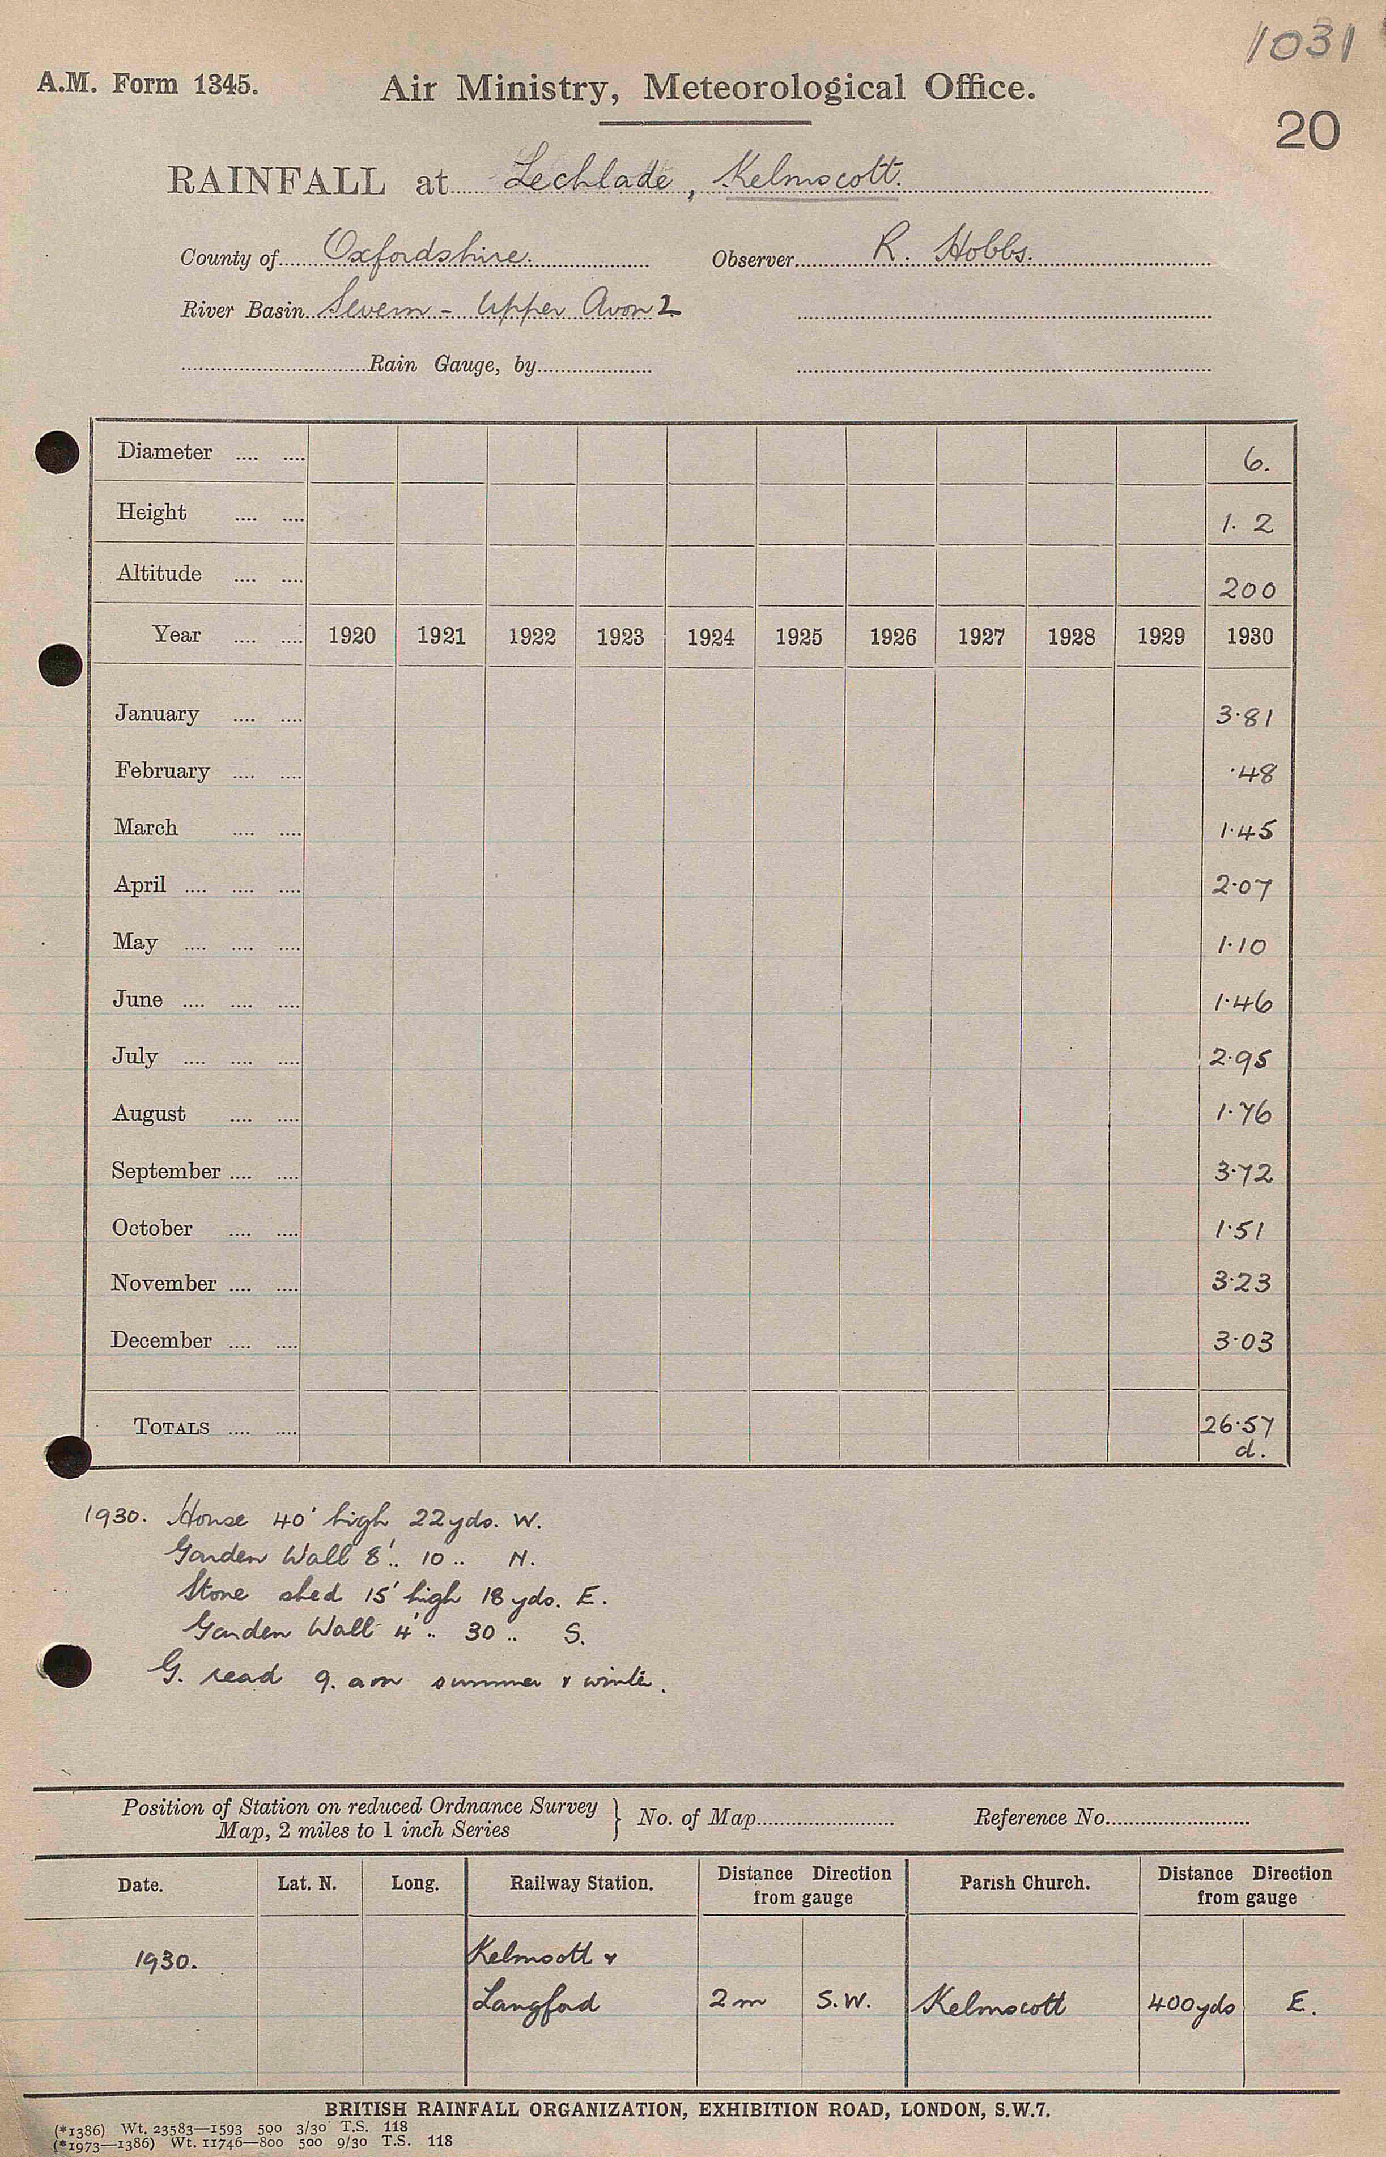 1031
A.M. Form 1345. Air Ministry, Meteorological Office.
20
RAINFALL at Lechlade, Kelmscott.
County of Oxfordshire. Observer R. Hobbs.
River Basin Severn - Upper Avon 2
Rain Gauge, by
Diameter .... .... 6.
Height .... .... 1. 2
Altitude .... .... 200
Year .... .... 1920 1921 1922 1923 1924 1925 1926 1927 1928 1929 1930
January .... .... 3·81
February .... .... ·48
March .... .... 1·45
April .... .... .... 2·07
May .... .... .... 1·10
June .... .... .... 1·46
July .... .... .... 2·95
August .... .... 1·76
September .... .... 3·72
October .... .... 1·51
November .... .... 3·23
December .... .... 3·03
TOTALS .... .... 26·57
d.
1930. House 40' high 22yds. W.
Garden Wall 8' .. 10 .. N.
Stone shed 15' high 18 yds. E.
Garden Wall 4' .. 30 .. S.
G. read 9. am summer & winter.
Position of Station on reduced Ordnance Survey
Map, 2 miles to 1 inch Series } No. of Map Reference No.
Date. Lat. N. Long. Railway Station. Distance Direction from gauge Parish Church. Distance Direction from gauge
1930. Kelmscott &
Langford 2 m S.W. Kelmscott 400yds E.
BRITISH RAINFALL ORGANIZATION, EXHIBITION ROAD, LONDON, S.W.7.
(*1386) Wt. 23583—1593 500 3/30 T.S. 118
(*1973—1386) Wt. 11746—800 500 9/30 T.S. 118